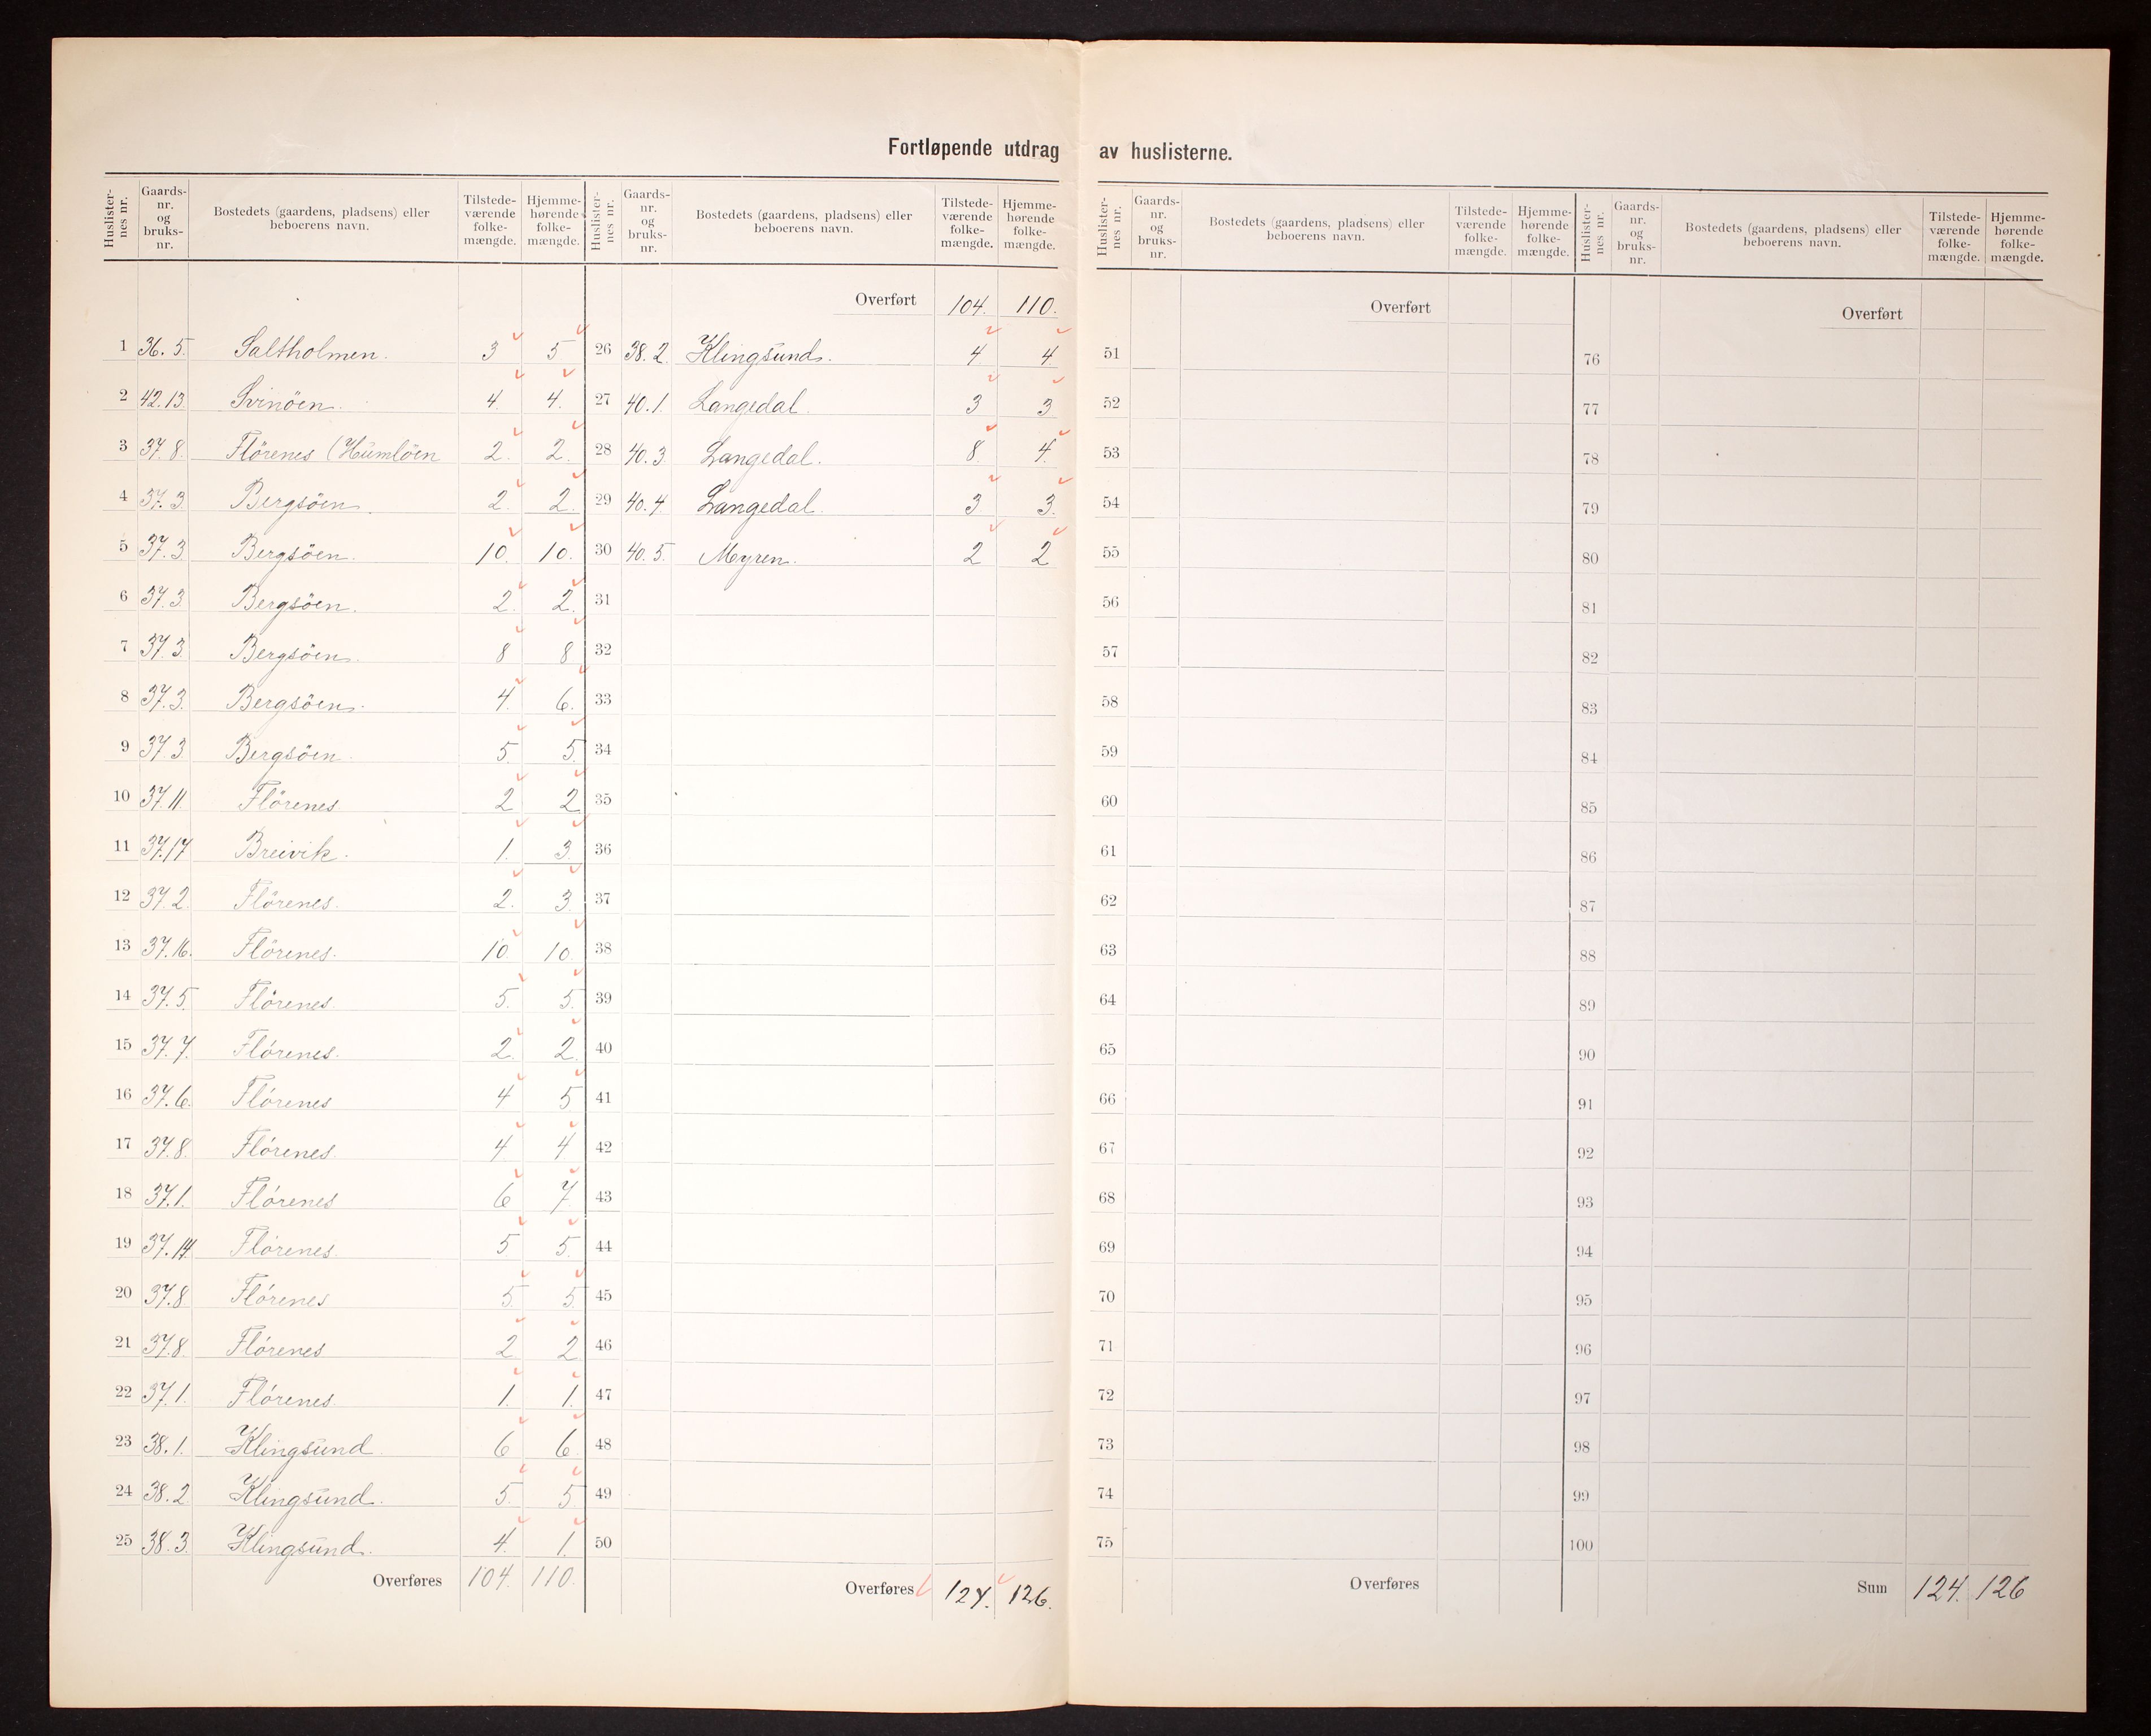 Fortløpende utdrag av huslisterne.
Huslister-nes nr. | Gaards-nr. og bruks-nr. | Bostedets (gaardens, pladsens) eller beboerens navn. | Tilstede-værende folke-mængde. | Hjemme-hørende folke-mængde.
1 36. 5. Saltholmen. 3 5
2 42. 13. Svinöen. 4. 4.
3 37. 8. Flörenes (Humlöen 2. 2.
4 37. 3. Bergsöen. 2. 2.
5 37. 3. Bergsöen. 10. 10.
6 37. 3. Bergsöen. 2. 2.
7 37. 3. Bergsöen. 8 8
8 37. 3. Bergsöen. 4. 6.
9 37. 3. Bergsöen. 5. 5.
10 37. 11. Flörenes 2 2
11 37. 17 Breivik. 1. 3.
12 37. 2. Flörenes. 2. 3
13 37. 16. Flörenes. 10. 10
14 37. 5. Flörenes 5. 5.
15 37. 7. Flörenes. 2. 2.
16 37. 6. Flörenes 4 5
17 37. 8. Flörenes. 4. 4
18 37. 1. Flörenes 6 7
19 37. 14. Flörenes. 5 5.
20 37. 8. Flörenes 5. 5.
21 37. 8. Flörenes 2 2
22 37. 1. Flörenes. 1. 1.
23 38. 1. Klingsund. 6 6
24 38. 2. Klingsund. 5. 5
25 38. 3. Klingsund. 4. 1.
Overføres 104. 110.
Huslister-nes nr. | Gaards-nr. og bruks-nr. | Bostedets (gaardens, pladsens) eller beboerens navn. | Tilstede-værende folke-mængde. | Hjemme-hørende folke-mængde.
Overført 104. 110.
26 38. 2. Klingsund. 4 4
27 40. 1. Langedal. 3 3
28 40. 3. Langedal. 8. 4.
29 40. 4. Langedal. 3 3.
30 40. 5. Myren. 2 2
31
32
33
34
35
36
37
38
39
40
41
42
43
44
45
46
47
48
49
50
Overføres 124. 126.
Huslister-nes nr. | Gaards-nr. og bruks-nr. | Bostedets (gaardens, pladsens) eller beboerens navn. | Tilstede-værende folke-mængde. | Hjemme-hørende folke-mængde.
Overført
51
52
53
54
55
56
57
58
59
60
61
62
63
64
65
66
67
68
69
70
71
72
73
74
75
Overføres
Huslister-nes nr. | Gaards-nr. og bruks-nr. | Bostedets (gaardens, pladsens) eller beboerens navn. | Tilstede-værende folke-mængde. | Hjemme-hørende folke-mængde.
Overført
76
77
78
79
80
81
82
83
84
85
86
87
88
89
90
91
92
93
94
95
96
97
98
99
100
Sum 124. 126